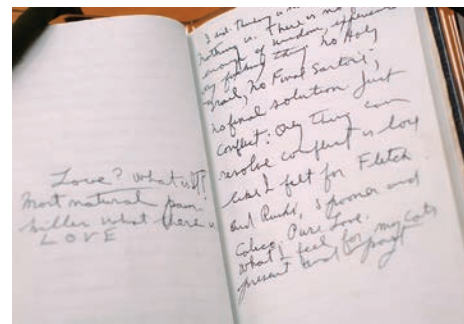 Love? What is it?
Most natural pain
killer what there is
LOVE
nothing is. There is no
enough of wisdom, experience
any fucking thing. No Holy
Grail, No Final Satori,
no final solution. Just
conflict. Only thing can
resolve conflict is love
like I felt for Fletch
and Ruski, Spooner and
Calico. Pure Love.
What I feel for my cats
present and past